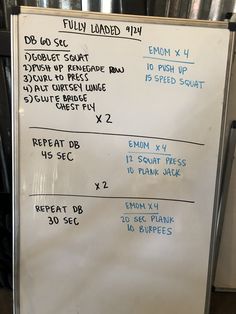 FULLY LOADED 9/24
DB 60 SEC
1) GOBLET SQUAT
2) PUSH UP RENEGADE ROW
3) CURL TO PRESS
4) ALT CURTSEY LUNGE
5) GLUTE BRIDGE
CHEST FLY
EMOM x 4
10 PUSH UP
15 SPEED SQUAT
x 2
REPEAT DB
45 SEC
EMOM x 4
12 SQUAT PRESS
10 PLANK JACK
x 2
REPEAT DB
30 SEC
EMOM x 4
20 SEC PLANK
10 BURPEES